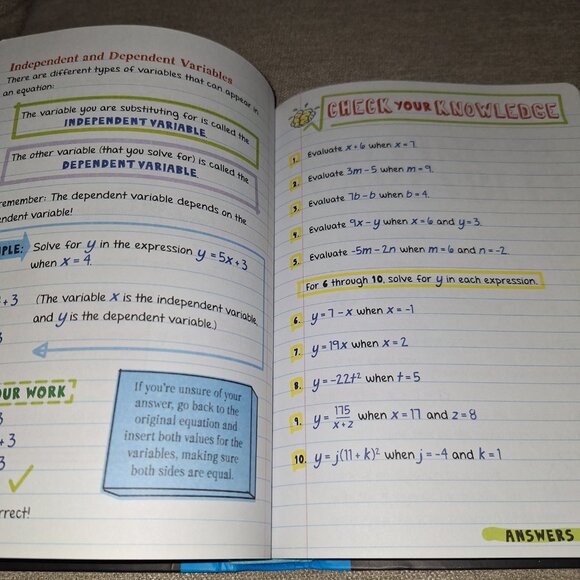 Independent and Dependent Variables
There are different types of variables that can appear in
an equation:
The variable you are substituting for is called the
INDEPENDENT VARIABLE.
The other variable (that you solve for) is called the
DEPENDENT VARIABLE.
remember: The dependent variable depends on the
endent variable!
PLE: Solve for y in the expression y = 5x + 3
when x = 4.
+ 3 (The variable x is the independent variable,
and y is the dependent variable.)
3
OUR WORK
3
+ 3
3
rrect!
If you're unsure of your
answer, go back to the
original equation and
insert both values for the
variables, making sure
both sides are equal.
CHECK YOUR KNOWLEDGE
1. Evaluate x + 6 when x = 7.
2. Evaluate 3m - 5 when m = 9.
3. Evaluate 7b - b when b = 4.
4. Evaluate 9x - y when x = 6 and y = 3.
5. Evaluate -5m - 2n when m = 6 and n = -2.
For 6 through 10, solve for y in each expression.
6. y = 7 - x when x = -1
7. y = 19x when x = 2
8. y = -22t² when t = 5
9. y = 175/(x + z) when x = 17 and z = 8
10. y = j(11 + k)² when j = -4 and k = 1
ANSWERS